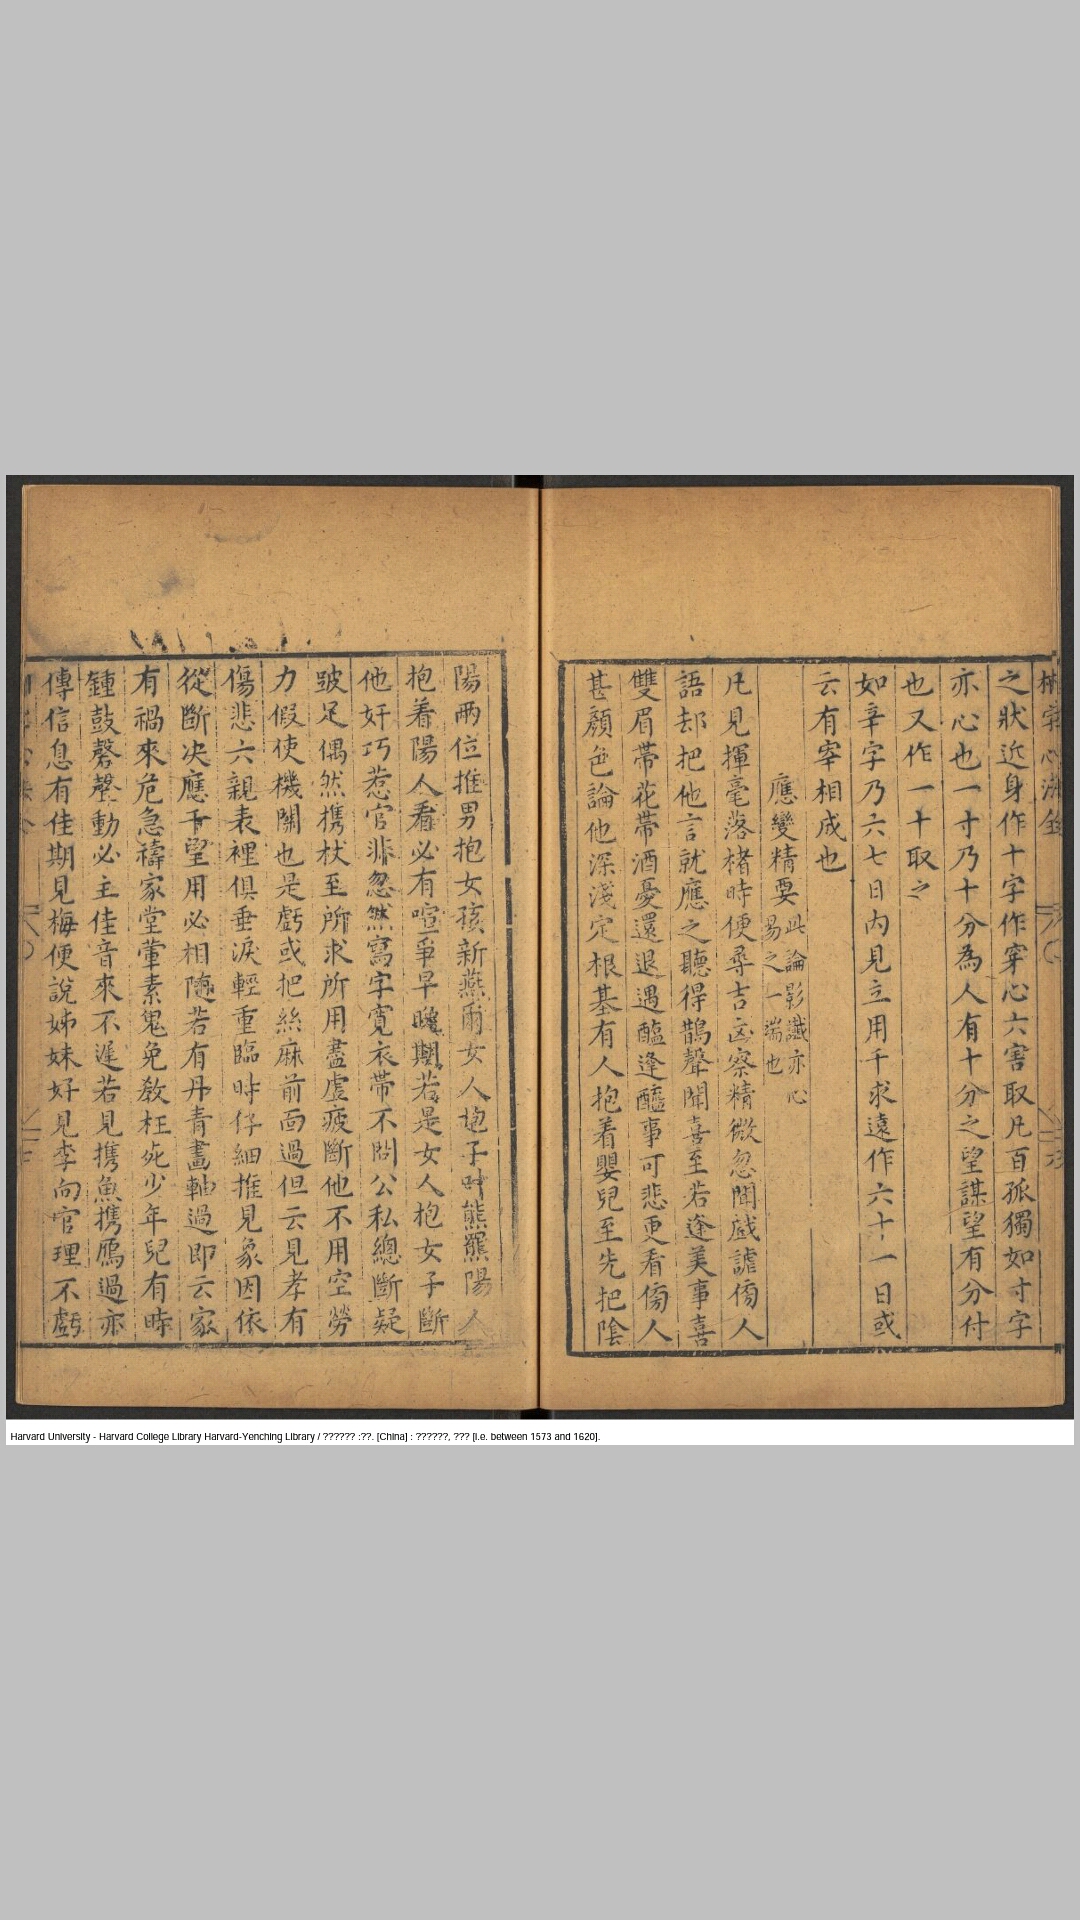 之狀近身作十字作穿心六害取凡百孤獨如寸字
亦心也一寸乃十分為人有十分之望謀望有分付
也又作一十取之
如辛字乃六七日內見立用千求遠作六十一日或
云有宰相成也
應變精要
此論影讖亦心
易之一端也
凡見揮毫落楮時便尋吉凶察精微忽聞戲謔傍人
語却把他言就應之聽得鵲聲聞喜至若逢美事喜
雙眉帶花帶酒憂還退遇醞逢醢事可悲更看傍人
甚顏色論他深淺定根基有人抱着嬰兒至先把陰
陽兩位推男抱女孩新燕爾女人抱子叶熊羆陽人
抱着陽人看必有喧爭早晚期若是女人抱女子斷
他奸巧惹官非忽然寫字寬衣帶不問公私總斷疑
跛足偶然携杖至所求所用盡虛疲斷他不用空勞
力假使機關也是虧或把絲麻前面過但云見孝有
傷悲六親表裡俱垂淚輕重臨時仔細推見象因依
從斷决應干望用必相隨若有丹青畫軸過即云家
有禍來危急禱家堂葷素鬼免教枉死少年兒有時
鍾鼓磬聲動必主佳音來不遲若見携魚携鴈過亦
傳信息有佳期見梅便說姊妹好見李向官理不虧
Harvard University - Harvard College Library Harvard-Yenching Library / ?????? :??. [China] : ??????, ??? [i.e. between 1573 and 1620].